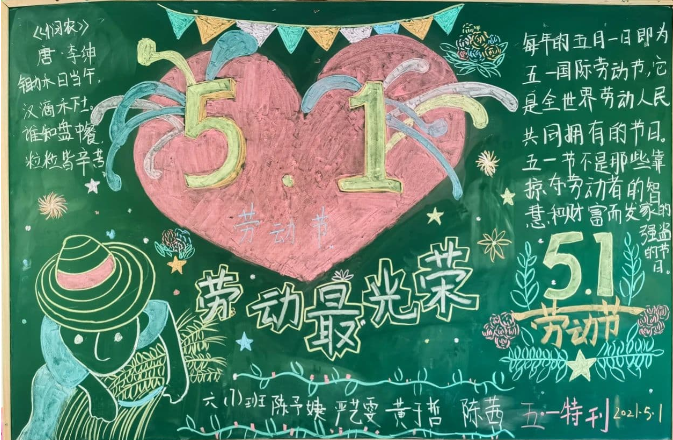 《悯农》
唐·李绅
锄禾日当午,
汗滴禾下土。
谁知盘中餐,
粒粒皆辛苦
5.1
劳动节
劳动最光荣
每年的五月一日即为
五一国际劳动节,它
是全世界劳动人民
共同拥有的节日。
五一节不是那些靠
掠夺劳动者的智
慧和财富而发家的
强盗
的节
日。
5.1
劳动节
六(1)班 陈予婕 严艺雯 黄于哲 陈茜
五一特刊 2021.5.1